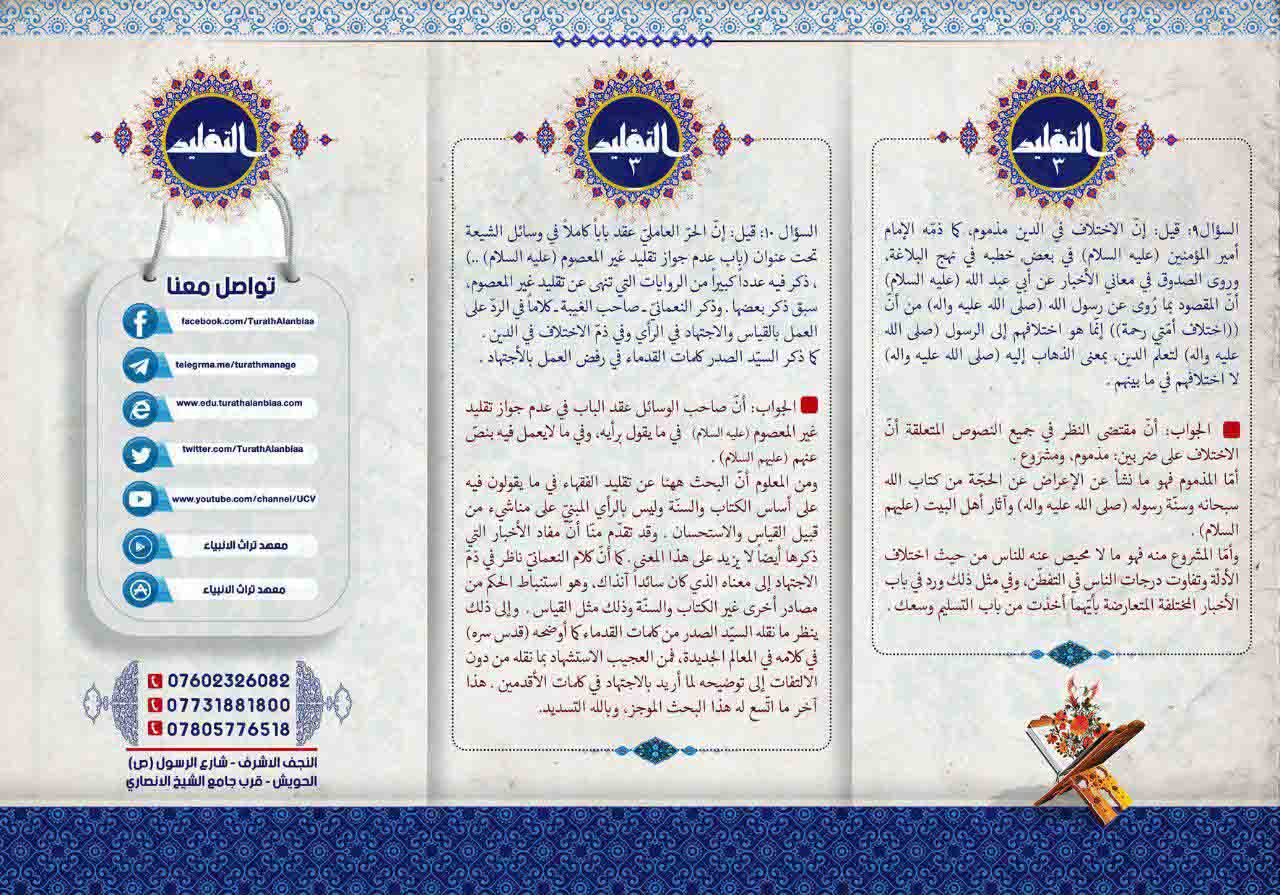 التقليد
٣
السؤال٩: قيل: إنّ الاختلاف في الدين مذموم، كما ذمّه الإمام
أمير المؤمنين (عليه السلام) في بعض خطبه في نهج البلاغة،
وروى الصدوق في معاني الأخبار عن أبي عبد الله (عليه السلام)
أنّ المقصود بما رُوي عن رسول الله (صلى الله عليه واله) من أنّ
((اختلاف أمّتي رحمة)) إنّما هو اختلافهم إلى الرسول (صلى الله
عليه واله) لتعلّم الدين، بمعنى الذهاب إليه (صلى الله عليه واله)
لا اختلافهم في ما بينهم .
الجواب: أنّ مقتضى النظر في جميع النصوص المتعلقة أنّ
الاختلاف على ضربين: مذموم، ومشروع .
أمّا المذموم فهو ما نشأ عن الإعراض عن الحجّة من كتاب الله
سبحانه وسنّة رسوله (صلى الله عليه واله) وآثار أهل البيت (عليهم
السلام) .
وأمّا المشروع منه فهو ما لا محيص عنه للناس من حيث اختلاف
الأدلّة وتفاوت درجات الناس في التفطّن، وفي مثل ذلك ورد في باب
الأخبار المختلفة المتعارضة بأيّهما أخذت من باب التسليم وسعك .
التقليد
٣
السؤال ١٠: قيل: إنّ الحرّ العامليّ عقد باباً كاملاً في وسائل الشيعة
تحت عنوان (باب عدم جواز تقليد غير المعصوم (عليه السلام) ..)
، ذكر فيه عدداً كبيراً من الروايات التي تنهى عن تقليد غير المعصوم،
سبق ذكر بعضها . وذكر النعمانيّ ـ صاحب الغيبة ـ كلاماً في الردّ على
العمل بالقياس والاجتهاد في الرأي وفي ذمّ الاختلاف في الدين .
كما ذكر السيّد الصدر كلمات القدماء في رفض العمل بالأجتهاد .
الجواب: أنّ صاحب الوسائل عقد الباب في عدم جواز تقليد
غير المعصوم (عليه السلام) في ما يقول برأيه، وفي ما لايعمل فيه بنصّ
عنهم (عليهم السلام) .
ومن المعلوم أنّ البحث ههنا عن تقليد الفقهاء في ما يقولون فيه
على أساس الكتاب والسنّة وليس بالرأي المبنيّ على مناشيء من
قبيل القياس والاستحسان . وقد تقدّم منّا أنّ مفاد الأخبار التي
ذكرها أيضاً لا يزيد على هذا المعنى . كما أنّ كلام النعماني ناظر في ذمّ
الاجتهاد إلى معناه الذي كان سائدا آنذاك، وهو استنباط الحكم من
مصادر أخرى غير الكتاب والسنّة وذلك مثل القياس . وإلى ذلك
ينظر ما نقله السيّد الصدر من كلمات القدماء كما أوضحه (قدس سره)
في كلامه في المعالم الجديدة، فمن العجيب الاستشهاد بما نقله من دون
الالتفات إلى توضيحه لما أريد بالاجتهاد في كلمات الأقدمين . هذا
آخر ما اتّسع له هذا البحث الموجز، وبالله التسديد.
التقليد
تواصل معنا
facebook.com/TurathAlanbiaa
telegrma.me/turathmanage
www.edu.turathalanbiaa.com
twitter.com/TurathAlanbiaa
www.youtube.com/channel/UCV
معهد تراث الانبياء
معهد تراث الانبياء
07602326082
07731881800
07805776518
النجف الاشرف - شارع الرسول (ص)
الحويش - قرب جامع الشيخ الانصاري